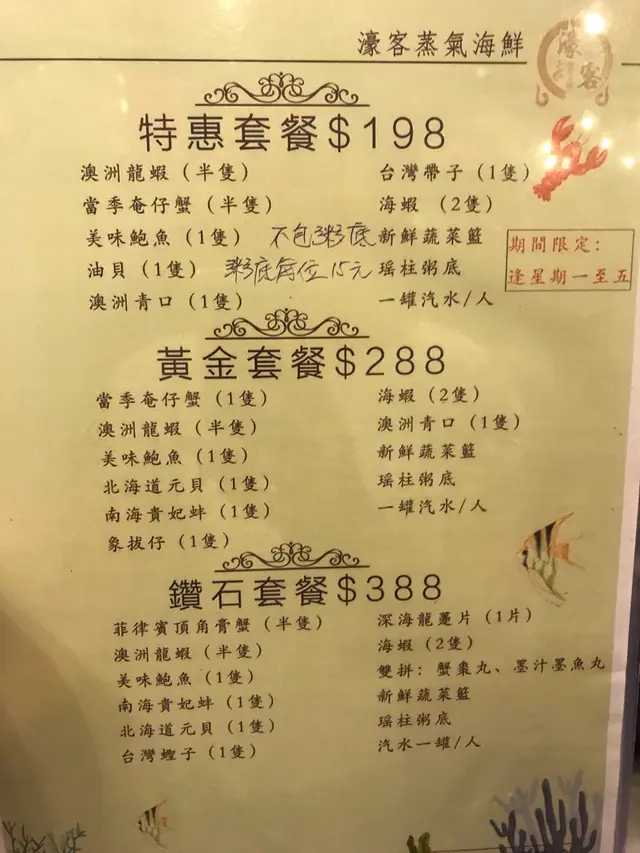 濠客蒸氣海鮮
濠客
特惠套餐$198
澳洲龍蝦（半隻）
當季奄仔蟹（半隻）
美味鮑魚（1隻）
油貝（1隻）
澳洲青口（1隻）
不包粥底
粥底每位15元
台灣帶子（1隻）
海蝦（2隻）
新鮮蔬菜籃
瑶柱粥底
一罐汽水/人
期間限定：
逢星期一至五
黃金套餐$288
當季奄仔蟹（1隻）
澳洲龍蝦（半隻）
美味鮑魚（1隻）
北海道元貝（1隻）
南海貴妃蚌（1隻）
象拔仔（1隻）
海蝦（2隻）
澳洲青口（1隻）
新鮮蔬菜籃
瑶柱粥底
一罐汽水/人
鑽石套餐$388
菲律賓頂角膏蟹（半隻）
澳洲龍蝦（半隻）
美味鮑魚（1隻）
南海貴妃蚌（1隻）
北海道元貝（1隻）
台灣蟶子（1隻）
深海龍躉片（1片）
海蝦（2隻）
雙拼：蟹棗丸、墨汁墨魚丸
新鮮蔬菜籃
瑶柱粥底
汽水一罐/人